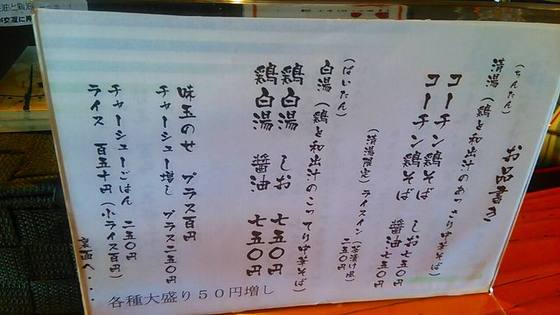 お品書き
(ちんたん)
清湯(鶏と和出汁のあっさり中華そば)
コーチン鶏そば しお七五〇円
コーチン鶏そば 醤油七五〇円
(清湯限定)ライスイン(茶漬け風)二五〇円
(ぱいたん)
白湯(鶏と和出汁のこってり中華そば)
鶏白湯 しお 七五〇円
鶏白湯 醤油 七五〇円
味玉のせ プラス百円
チャーシュー増し プラス二五〇円
チャーシューごはん 二五〇円
ライス 百五十円(小ライス百円)
裏面へ・・・
各種大盛り50円増し